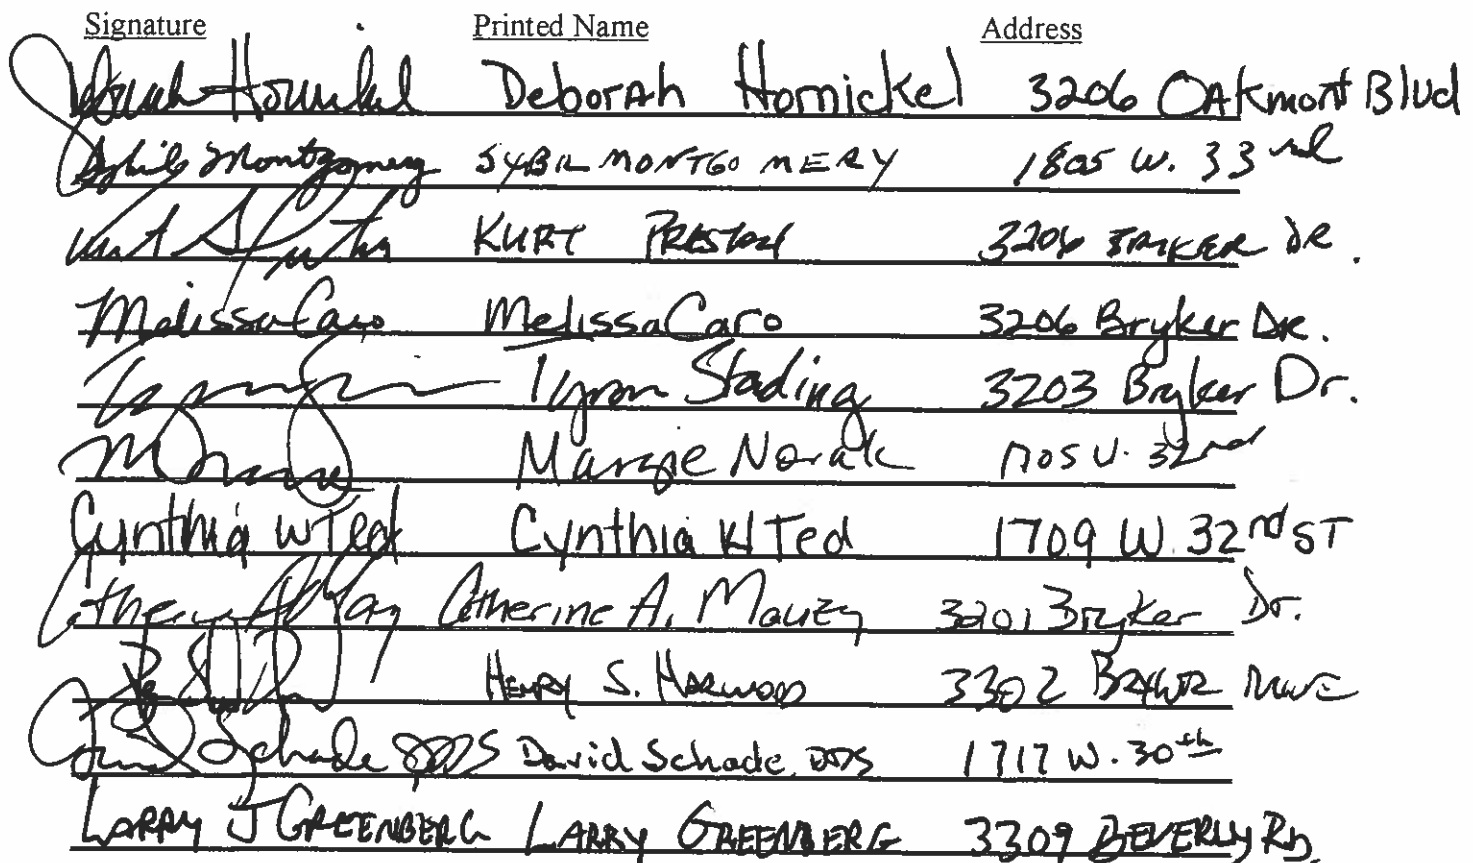 Signature Printed Name Address
Deborah Hornickel Deborah Hornickel 3206 Oakmont Blvd
Sybil Montgomery SYBIL MONTGOMERY 1805 W. 33rd
KURT PRESTON 3206 BRYKER DR.
Melissa Caro Melissa Caro 3206 Bryker Dr.
Tyron Stading 3203 Bryker Dr.
Margie Novak 1705 W. 32nd
Cynthia W Ted Cynthia W Ted 1709 W. 32nd ST
Catherine A. Mauzy 3201 Bryker Dr.
HENRY S. HARWOOD 3302 BRYKER DRIVE
David Schade DDS David Schade DDS 1717 W. 30th
LARRY J GREENBERG LARRY GREENBERG 3309 BEVERLY RD.